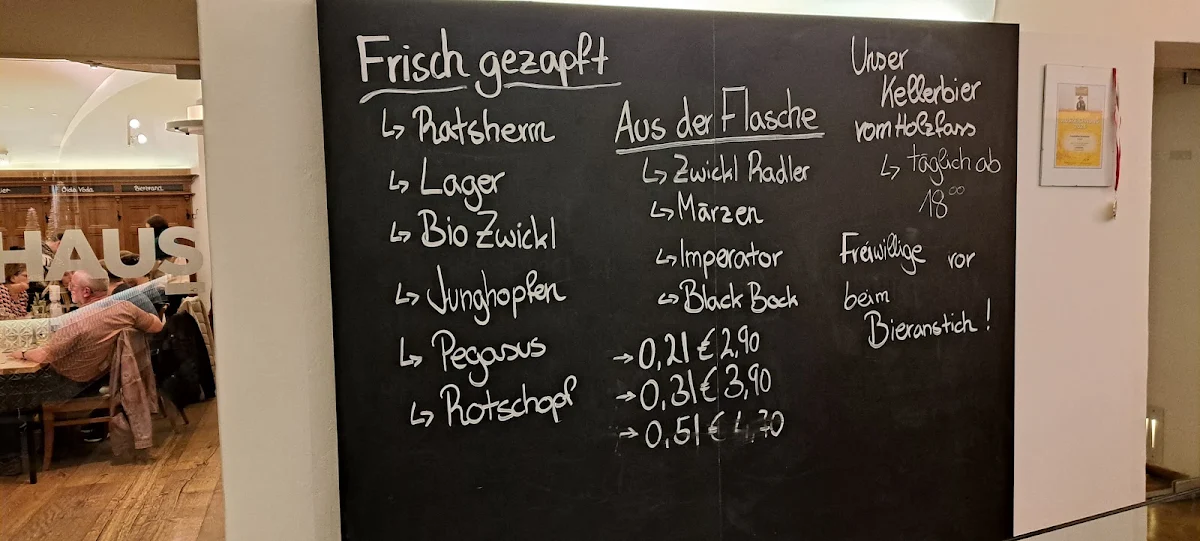 Frisch gezapft
↳ Ratsherrn
↳ Lager
↳ Bio Zwickl
↳ Junghopfen
↳ Pegasus
↳ Rotschopf
Aus der Flasche
↳ Zwickl Radler
↳ Märzen
↳ Imperator
↳ Black Bock
→ 0,2l € 2,90
→ 0,3l € 3,90
→ 0,5l € 4,70
Unser
Kellerbier
vom Holzfass
↳ täglich ab
18⁰⁰
Freiwillige vor
beim
Bieranstich!
HAUS
Bertrand